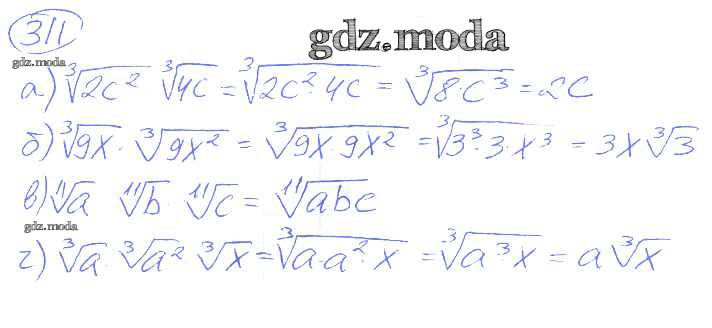 311
gdz.moda
gdz.moda
а) ∛2c² ∛4c = ∛2c²·4c = ∛8·c³ = 2c
б) ∛9x · ∛9x² = ∛9x·9x² = ∛3³·3·x³ = 3x∛3
в) ¹¹√a ¹¹√b · ¹¹√c = ¹¹√abc
gdz.moda
г) ∛a · ∛a² ∛x = ∛a·a²·x = ∛a³·x = a∛x